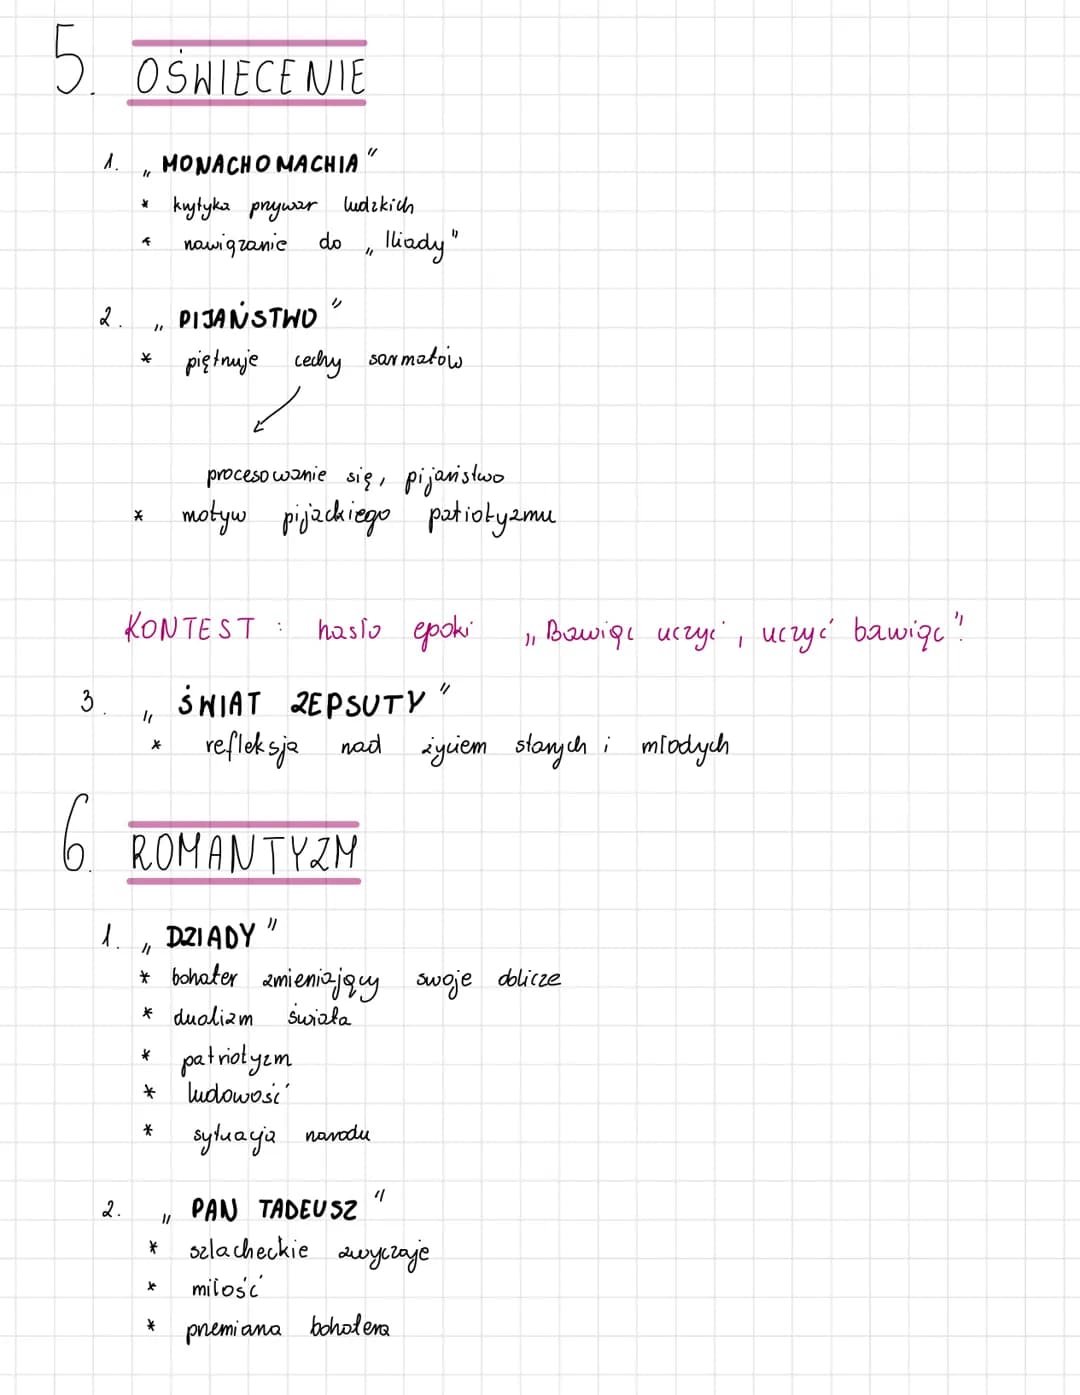 5. OŚWIECENIE
1. „MONACHOMACHIA"
* krytyka przywar ludzkich
* nawiązanie do „Iliady"
2. „PIJAŃSTWO"
* piętnuje cechy sarmatów
procesowanie się, pijaństwo
* motyw pijackiego patiotyzmu
KONTEST : hasło epoki „Bawiąc uczyć, uczyć bawiąc"!
3. „ŚWIAT ZEPSUTY"
* refleksja nad życiem starych i młodych
6. ROMANTYZM
1. „DZIADY"
* bohater zmieniający swoje oblicze
* dualizm świata
* patriotyzm
* ludowość
* sytuacja narodu
2. „PAN TADEUSZ"
* szlacheckie zwyczaje
* miłość
* przemiana bohatera